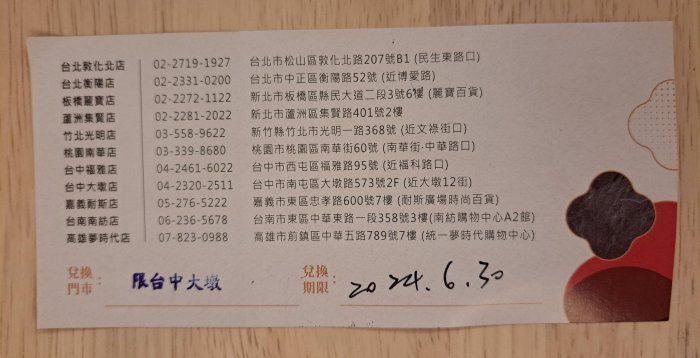 台北敦化北店 02-2719-1927 台北市松山區敦化北路207號B1 (民生東路口)
台北衡陽店 02-2331-0200 台北市中正區衡陽路52號 (近博愛路)
板橋麗寶店 02-2272-1122 新北市板橋區縣民大道二段3號6樓 (麗寶百貨)
蘆洲集賢店 02-2281-2022 新北市蘆洲區集賢路401號2樓
竹北光明店 03-558-9622 新竹縣竹北市光明一路368號 (近文祿街口)
桃園南華店 03-339-8680 桃園市桃園區南華街60號 (南華街·中華路口)
台中福雅店 04-2461-6022 台中市西屯區福雅路95號 (近福科路口)
台中大墩店 04-2320-2511 台中市南屯區大墩路573號2F (近大墩12街)
嘉義耐斯店 05-276-5222 嘉義市東區忠孝路600號7樓 (耐斯廣場時尚百貨)
台南南紡店 06-236-5678 台南市東區中華東路一段358號3樓(南紡購物中心A2館)
高雄夢時代店 07-823-0988 高雄市前鎮區中華五路789號7樓 (統一夢時代購物中心)
兌換門市: 限台中大墩
兌換期限: 2024.6.30